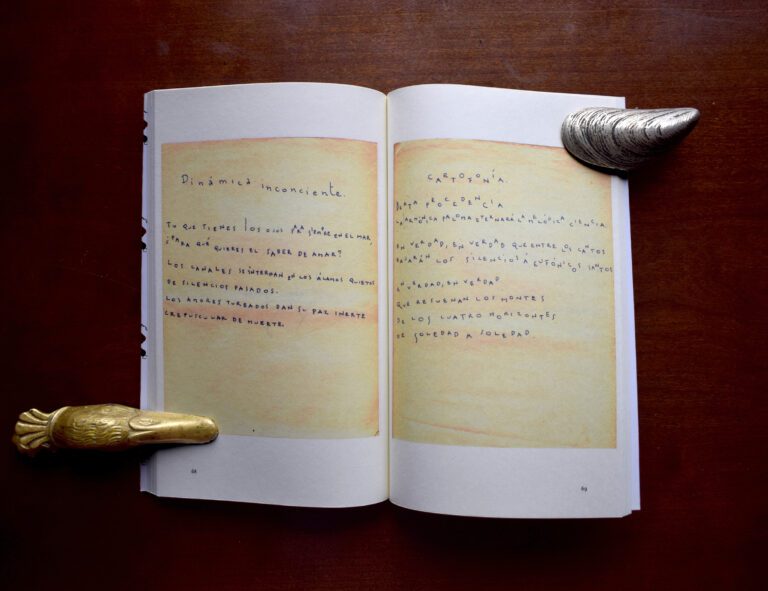 Dinámica inconciente.
TU QUE TIENES LOS OJOS PARA SIEMPRE EN EL MAR,
¿PARA QUÉ QUIERES EL SABER DE AMAR?
LOS CANALES SE INTERNAN EN LOS ÁLAMOS QUIETOS
DE SILENCIOS PASADOS.
LOS AMORES TURBADOS DAN SU PAZ INERTE
CREPUSCULAR DE MUERTE.
68
CARTOFONÍA.
PROCEDENCIA
LA ARMÓNICA PALOMA ETERNARÁ LA MELÓDICA CIENCIA.
EN VERDAD, EN VERDAD QUE ENTRE LOS CANTOS
BAJARÁN LOS SILENCIOS Á EUFÓNICOS SANTOS
EN VERDAD, EN VERDAD
QUE RESUENAN LOS MONTES
DE LOS CUATRO HORIZONTES
DE SOLEDAD A SOLEDAD.
69